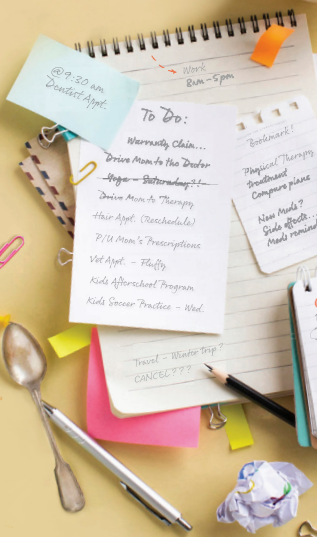 @9:30 am
Dentist Appt.
Work
8am-5pm
To Do:
Warranty Claim...
Drive Mom to the Doctor
Yoga - Saturday?!
Drive Mom to Therapy
Hair Appt. (Reschedule)
P/U Mom's Prescriptions
Vet Appt. - Fluffy
Kids Afterschool Program
Kids Soccer Practice - Wed.
Bookmark!
Physical Therapy
treatment
Compare plans
New Meds?
Side effects...
Meds remind
Travel - Winter Trip?
CANCEL???